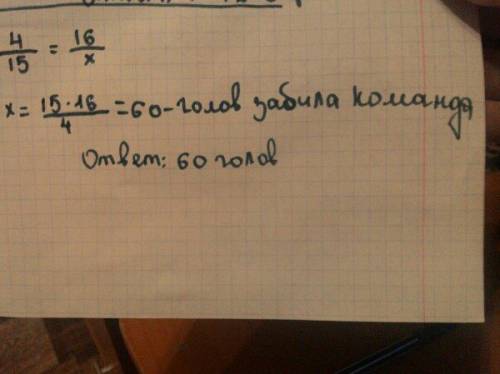 4/15 = 16/x
x = 15·16/4 = 60 - голов забила команда
Ответ: 60 голов